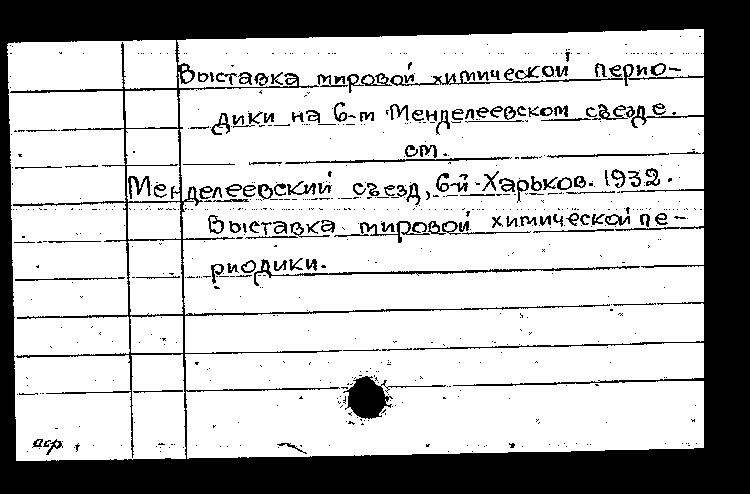 Выставка мировой химической перио-
дики на 6-м Менделеевском съезде.
см.
Менделеевский съезд, 6-й. Харьков. 1932.
Выставка мировой химической пе-
риодики.
аср.